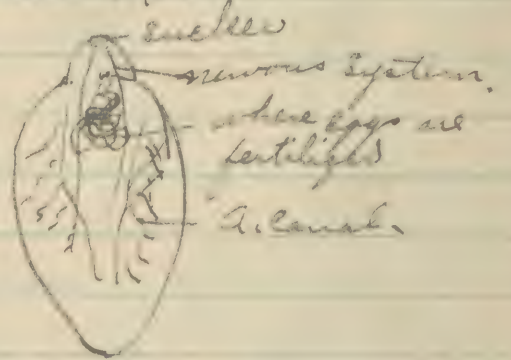 sucker
nervous system.
where eggs are
fertilized
A. canal.